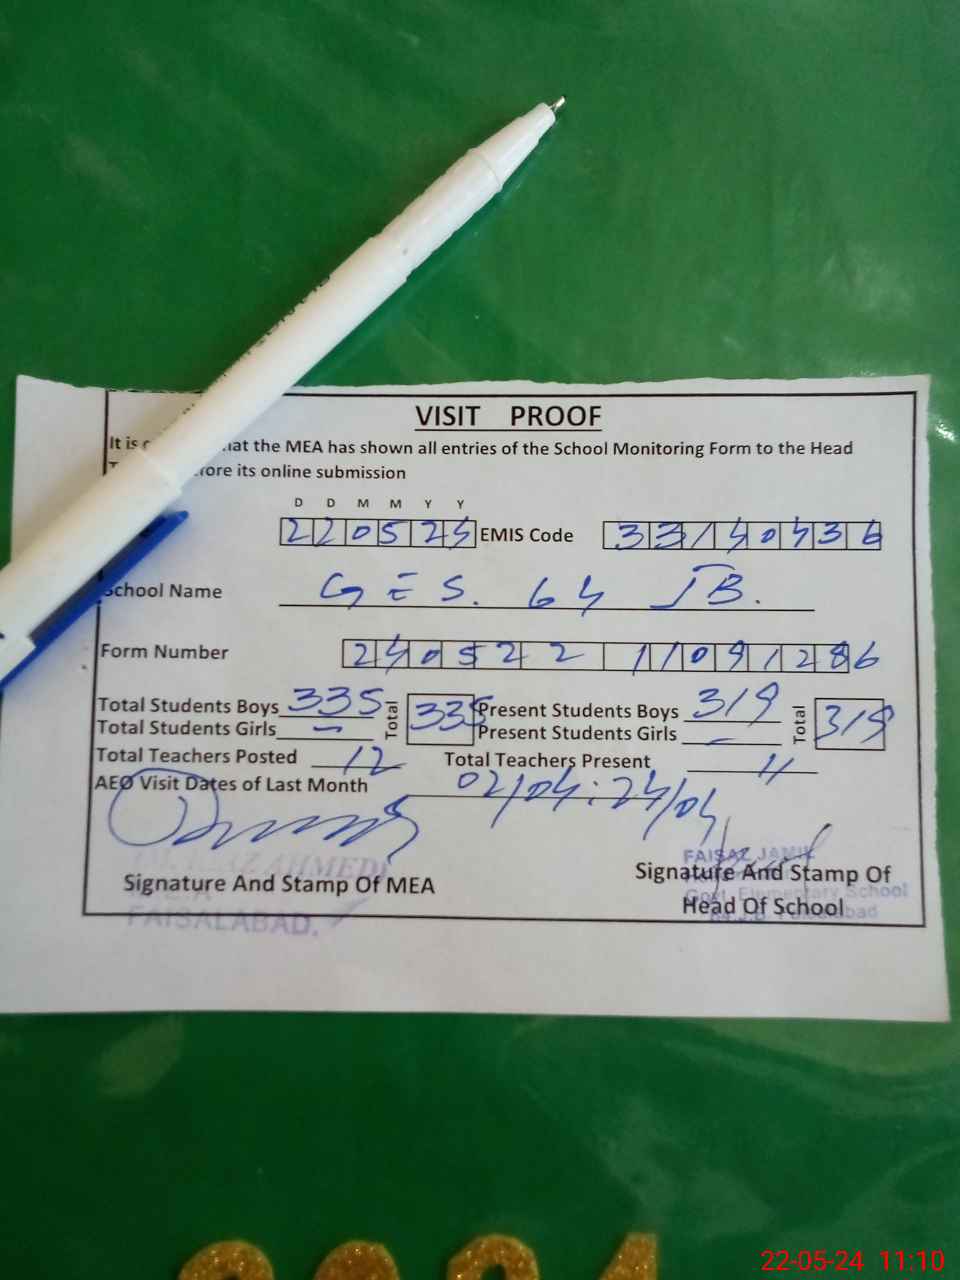 VISIT PROOF
It is hat the MEA has shown all entries of the School Monitoring Form to the Head
T fore its online submission
D D M M Y Y
220524 EMIS Code 33140436
School Name G E S. 64 JB.
Form Number 240522 11091286
Total Students Boys 335 Total 335 Present Students Boys 319 Total 319
Total Students Girls – Present Students Girls –
Total Teachers Posted 12 Total Teachers Present 11
AEO Visit Dates of Last Month 02/04: 24/04
FAISAL JAMIL
Signature And Stamp Of MEA
Signature And Stamp Of
Govt. Elementary School
Head Of School
64 J.B. Faisalabad
AHMED
FAISALABAD.
2024
22-05-24 11:10